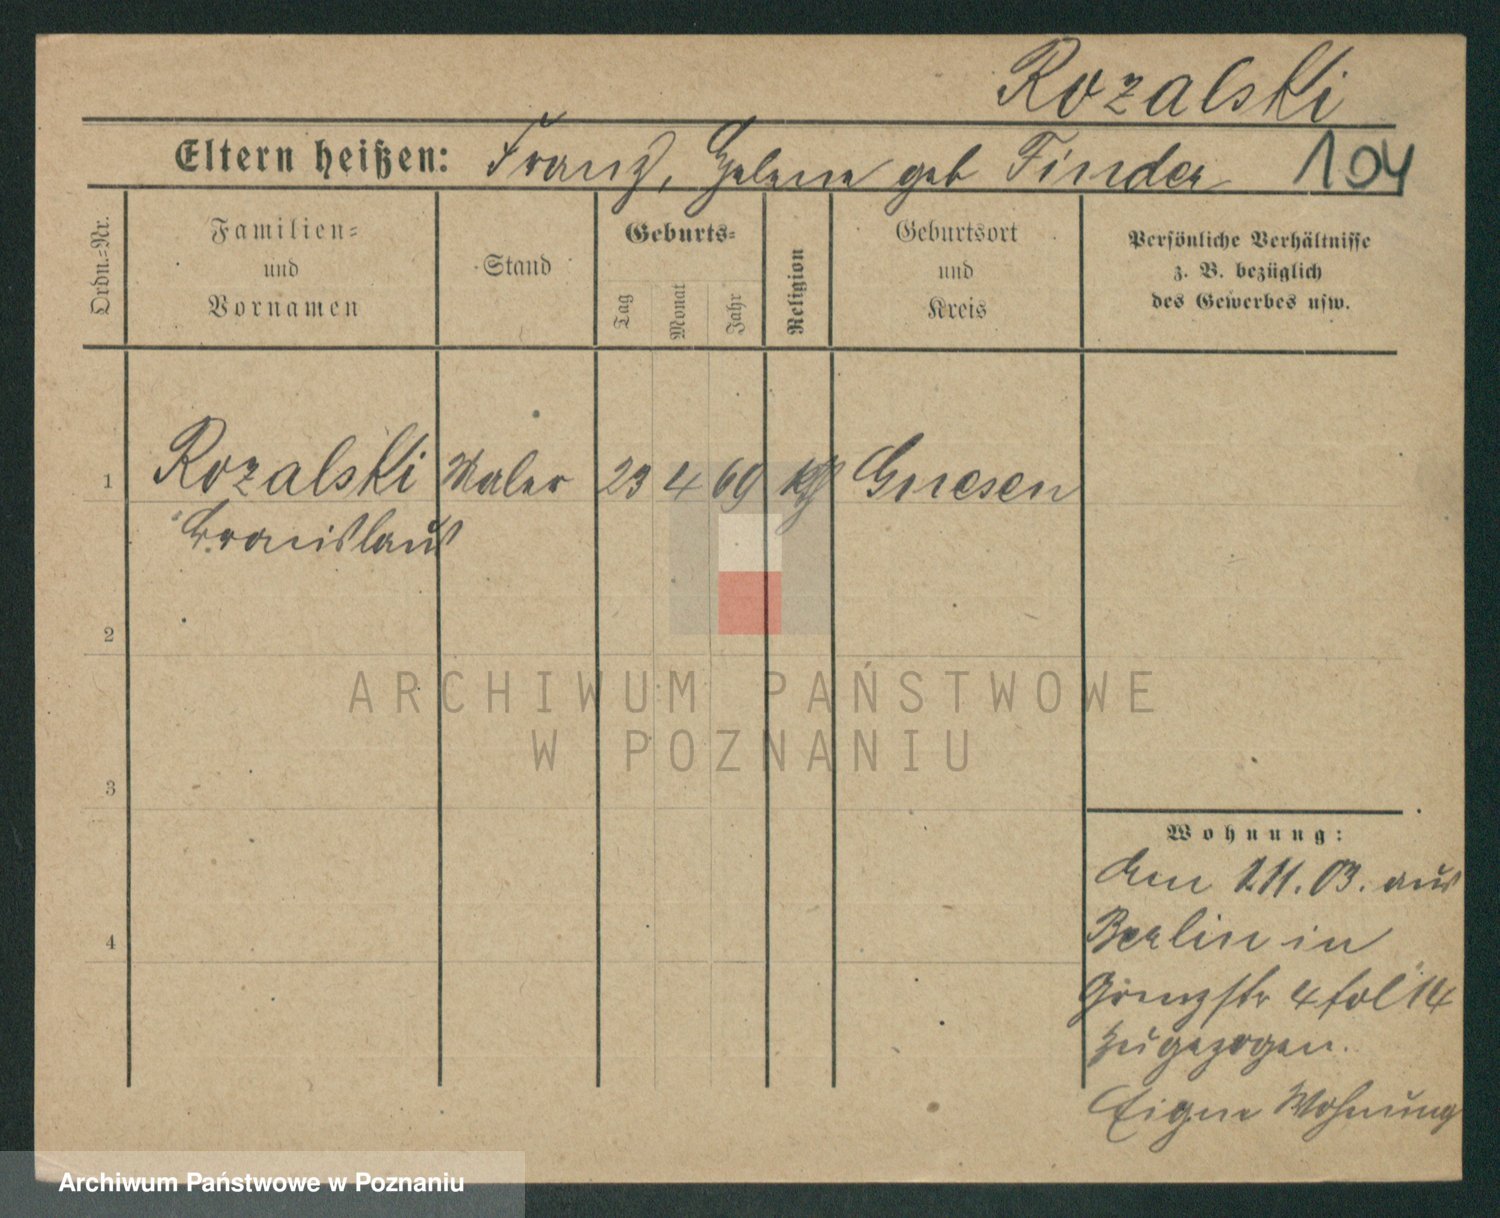 Rozalski
Eltern heißen: Franz, Helene geb Finder 104
Ordn.=Nr.
Familien=
und
Vornamen
Stand
Geburts=
Tag
Monat
Jahr
Religion
Geburtsort
und
Kreis
Persönliche Verhältnisse
z. B. bezüglich
des Gewerbes usw.
1 Rozalski Maler 23 4 69 kth Gnesen
Bronislaus
2
3
4
ARCHIWUM PAŃSTWOWE
W POZNANIU
Wohnung:
Am 1.11.03. aus
Berlin in
4 fol 14
zugezogen.
Eigene Wohnung
Archiwum Państwowe w Poznaniu